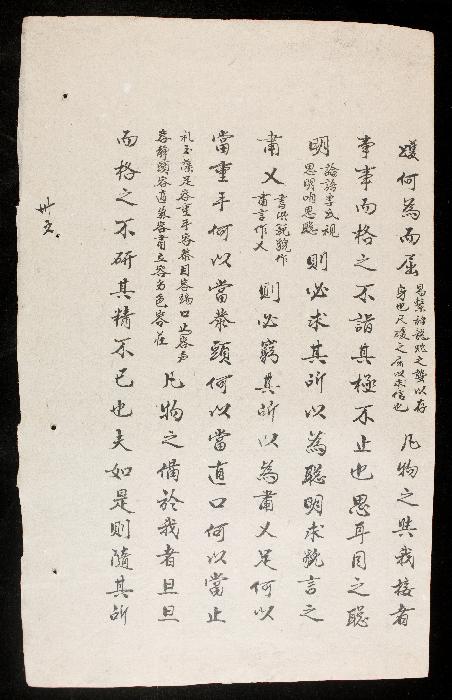 蠖何為而屈 易繫辞龍蛇之蟄以存身也尺蠖之屈以求信也 凡物之與我接者
事事而格之不詣其極不止也思耳目之聡
明 論語季氏視思明聴思聡 則必求其所以為聡明求貌言之
肅乂 書洪範貌作肅言作乂 則必窮其所以為肅乂足何以
當重手何以當恭頭何以當直口何以當止
礼玉藻足容重手容恭目容端口止容声容静頭容直氣容肅立容色容荘 凡物之備於我者旦旦
而格之不研其精不已也夫如是則隨其所
卅